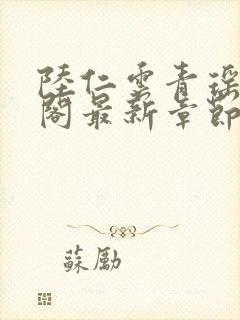 陸仁雲青瑶
閣最新章節
蘇勵